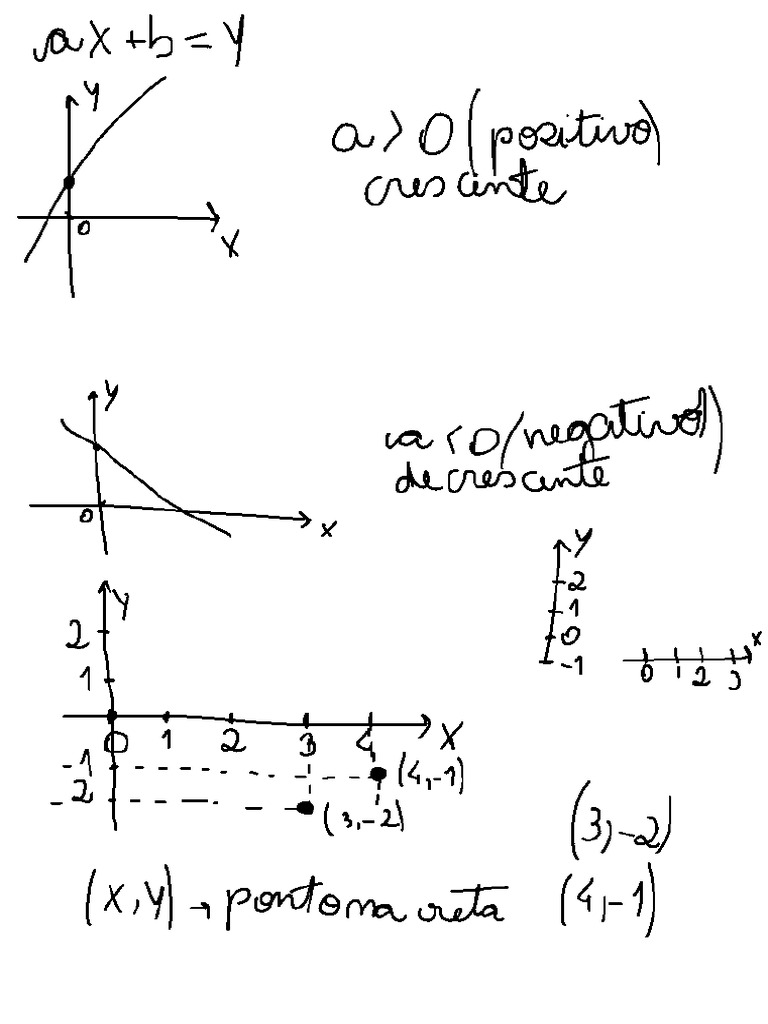 ax+b=y
y
a>0(positivo)
crescente
0
x
y
a<0(negativo)
decrescente
0
x
y
2
1
0
-1
x
0 1 2 3
y
2
1
0 1 2 3 4 x
-1
(4,-1)
-2
(3,-2)
(3,-2)
(x,y)→ponto na reta (4,-1)